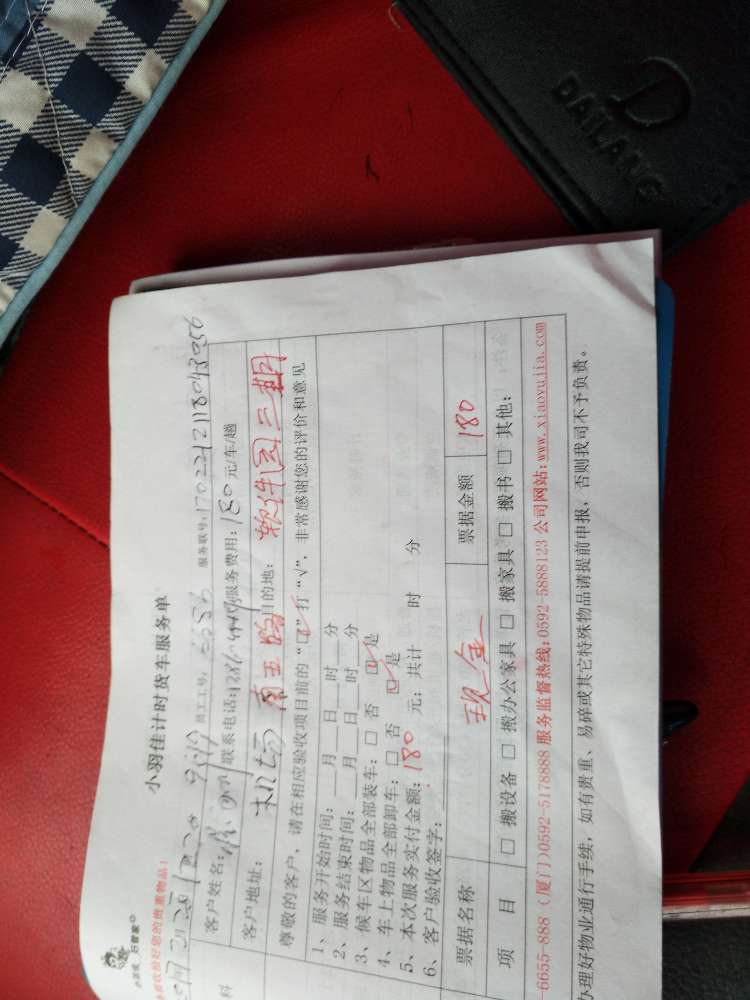 D
DAILANG
小羽佳 好管家
请收捡好您的贵重物品!
小羽佳计时货车服务单
员工工号: 6656 服务联号:
客户姓名: 联系电话: 服务费用: 180 元/车/趟
客户地址: 机场 目的地: 软件园二期
尊敬的客户, 请在相应验收项目前的“口”打“√”, 非常感谢您的评价和意见
1、服务开始时间: 月 日 时 分
2、服务结束时间: 月 日 时 分
3、候车区物品全部装车: □ 否 ☑ 是
4、车上物品全部卸车: □ 否 ☑ 是
5、本次服务实付金额: 180 元; 共计 时 分
6、客户验收签字:
票据名称 现金 票据金额 180
项 目 □ 搬设备 □ 搬办公家具 □ 搬家具 □ 搬书 □ 其他:
6655-888 (厦门)0592-5178888 服务监督热线:0592-5888123 公司网站:www.xiaoyujia.com
办理好物业通行手续, 如有贵重、易碎或其它特殊物品请提前申报, 否则我司不予负责。
料